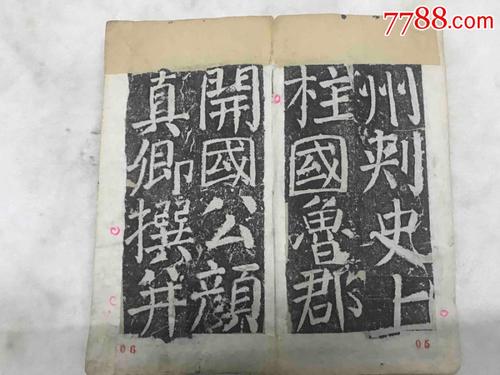 7788.com
州刾史上
柱國魯郡
開國公顔
真卿撰并
06
05